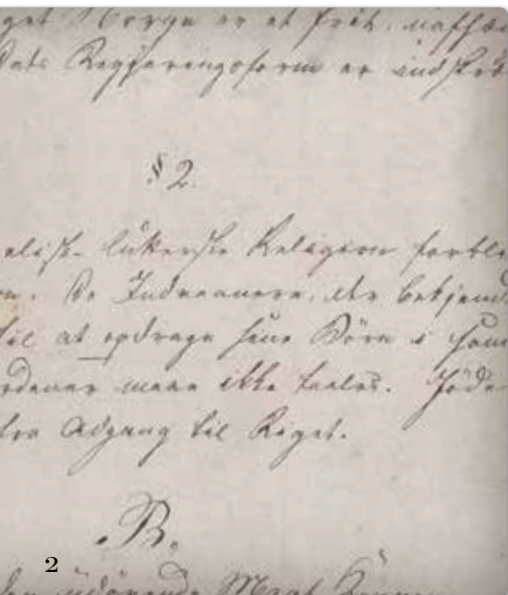 get Norge er et frit, uafhæn
dets Regjeringsform er indskræ
§ 2.
elisk-lutherske Religion forbli
on. De Indvaanere, der bekjende
til at opdrage sine Börn i sam
rdener maae ikke taales. Jöde
fra Adgang til Riget.
B.
2
den udövende Magt Kongen